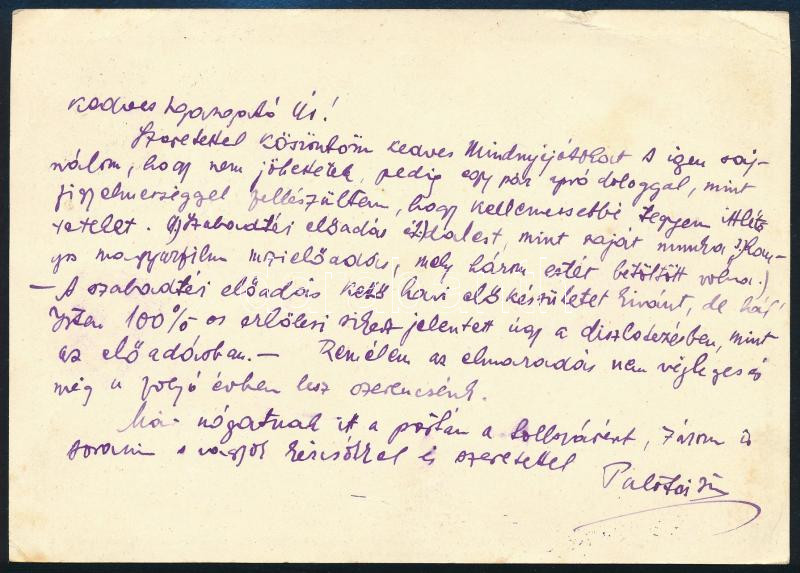 Kedves Igazgató Úr!
Szeretettel köszöntöm kedves Mindnyájótokat s igen saj-
nálom, hogy nem jöhettetek, pedig egy pár apró dologgal, mint
figyelmességgel felkészültem, hogy kellemesebbé tegyem ittlé
teteket. Szabadtéri előadás mint saját munka
magyarfilm előadás, mely három estét betöltött volna.)
- A szabadtéri előadás kető havi előkészületet kivánt, de hál'
Isten 100%-os erkölcsi sikert jelentett úgy a díszletezésben, mint
az előadásban. - Remélem az elmaradás nem végleges és
még a folyó évben lesz szerencsénk.
Már nógatnak itt a postán a tollszárért, zárom is
soraim s vagyok kézcsókkal és szeretettel
Palotai